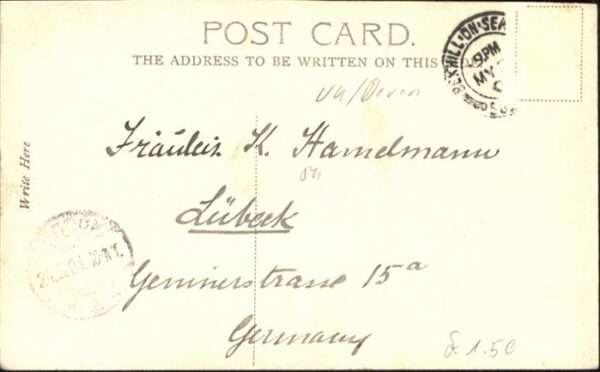 POST CARD.
THE ADDRESS TO BE WRITTEN ON THIS
BEXHILL-ON-SEA
9PM
MY
Write Here
Fräulein K. Hamelmann
Lübeck
Geninerstrasse 15a
Germany
1.50